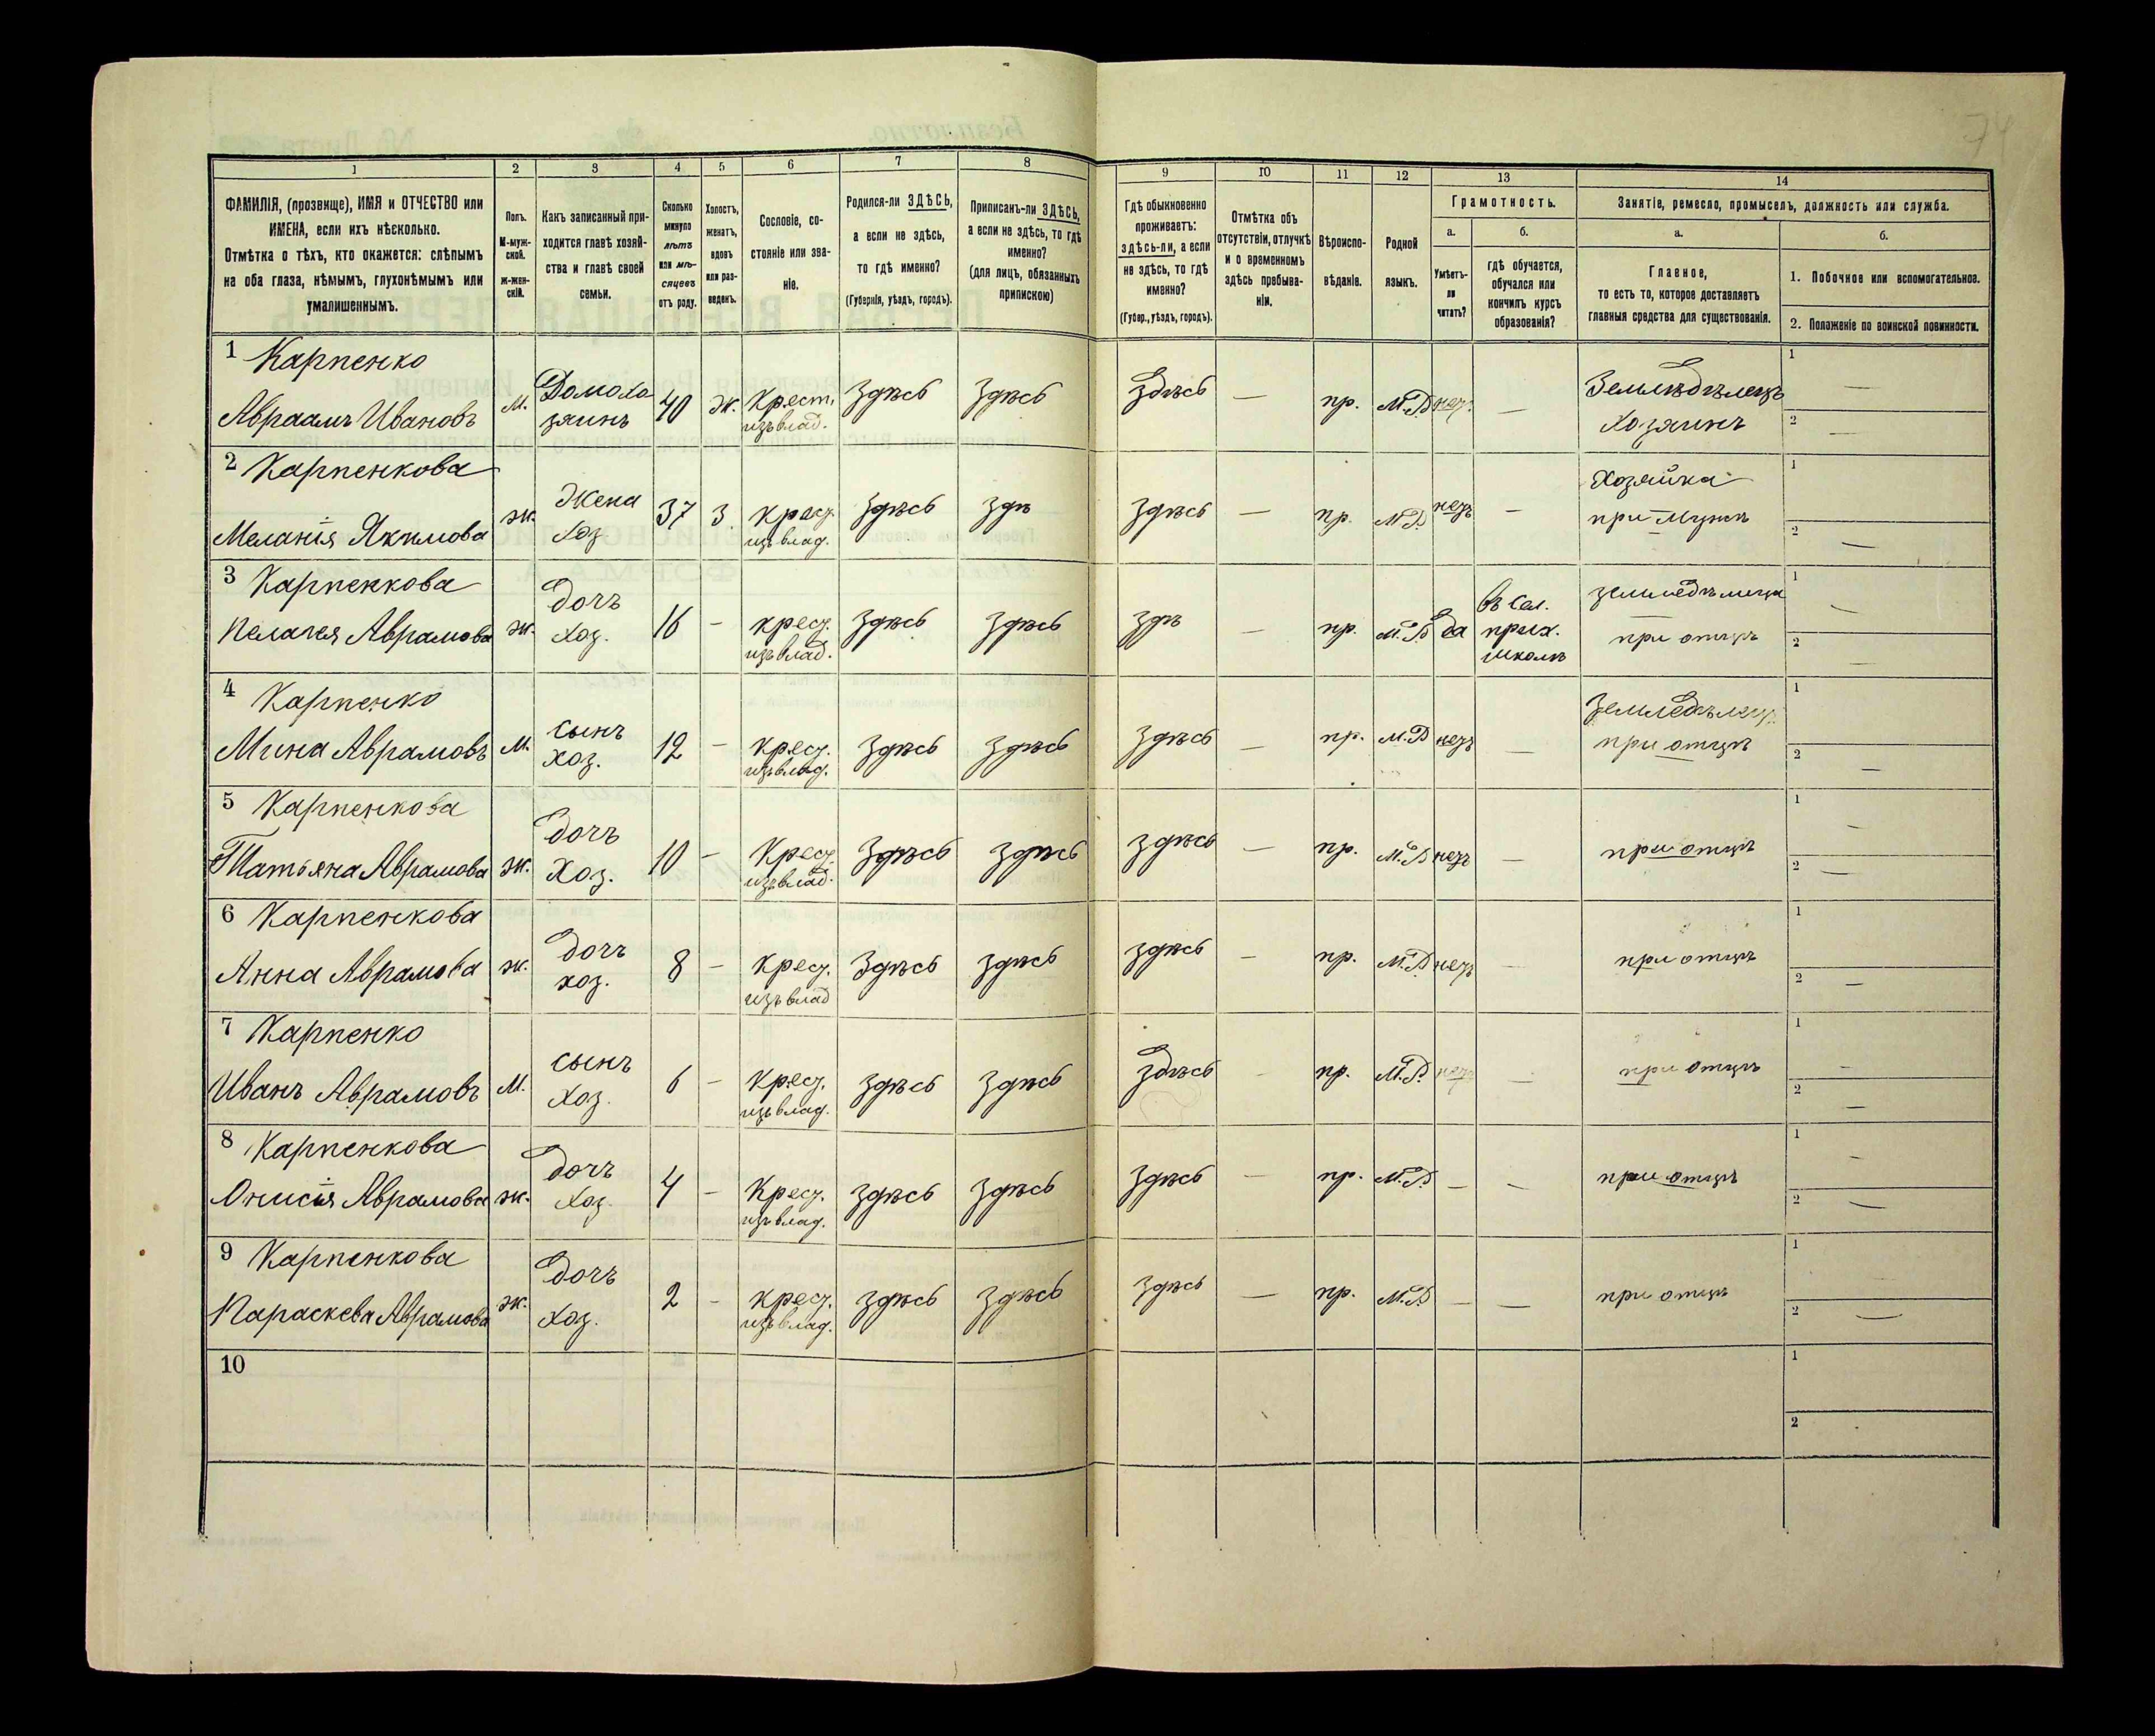 74
1 2 3 4 5 6 7 8 9 10 11 12 13 14
ФАМИЛІЯ, (прозвище), ИМЯ и ОТЧЕСТВО или
ИМЕНА, если ихъ нѣсколько.
Отмѣтка о тѣхъ, кто окажется: слѣпымъ
на оба глаза, нѣмымъ, глухонѣмымъ или
умалишеннымъ.
Полъ.
М-муж-
ской.
ж-жен-
скій.
Какъ записанный при-
ходится главѣ хозяй-
ства и главѣ своей
семьи.
Сколько
минуло
лѣтъ
или мѣ-
сяцевъ
отъ роду.
Холостъ,
женатъ,
вдовъ
или раз-
веденъ.
Сословіе, со-
стояніе или зва-
ніе.
Родился-ли ЗДѢСЬ,
а если не здѣсь,
то гдѣ именно?
(Губернія, уѣздъ, городъ).
Приписанъ-ли ЗДѢСЬ,
а если не здѣсь, то гдѣ
именно?
(для лицъ, обязанныхъ
припискою)
Гдѣ обыкновенно
проживаетъ:
здѣсь-ли, а если
не здѣсь, то гдѣ
именно?
(Губер., уѣздъ, городъ).
Отмѣтка объ
отсутствіи, отлучкѣ
и о временномъ
здѣсь пребыва-
ніи.
Вѣроиспо-
вѣданіе.
Родной
языкъ.
Грамотность.
а.
Умѣетъ-
ли
читать?
б.
гдѣ обучается,
обучался или
кончилъ курсъ
образованія?
Занятіе, ремесло, промыселъ, должность или служба.
а.
Главное,
то есть то, которое доставляетъ
главныя средства для существованія.
б.
1. Побочное или вспомогательное.
2. Положеніе по воинской повинности.
1 Карпенко
Авраамъ Ивановъ м. Домохо
зяинъ 40 ж. Крест.
изъ влад. Здѣсь Здѣсь здѣсь — пр. М.Р. нет. — Земледѣлецъ
Хозяинъ 1 — 2 —
2 Карпенкова
Меланія Якимова ж. Жена
хоз 37 з. Крест.
изъ влад. Здѣсь здѣ здѣсь — пр. М.Р. нетъ — Хозяйка
при мужѣ 1 2 —
3 Карпенкова
Пелагея Аврамова ж. дочь
хоз. 16 – крест.
изъ влад. Здѣсь здѣсь здѣ — пр. М.Р. да въ сел.
прих.
школѣ земледѣлица
при отцѣ 1 — 2 —
4 Карпенко
Мина Аврамовъ м. сынъ
хоз. 12 – крест.
изъ влад. Здѣсь здѣсь здѣсь — пр. М.Р. нетъ — Земледѣлец.
при отцѣ 1 2 —
5 Карпенкова
Татьяна Аврамова ж. дочь
хоз. 10 – Крест.
изъ влад. Здѣсь здѣсь здѣсь — пр. М.Р. нетъ — при отцѣ 1 — 2 —
6 Карпенкова
Анна Аврамова ж. дочь
хоз. 8 – крест.
изъ влад Здѣсь здѣсь здѣсь — пр. М.Р. нетъ — при отцѣ 1 2 —
7 Карпенко
Иванъ Аврамовъ м. сынъ
хоз. 6 – крест.
изъ влад. здѣсь здѣсь здѣсь — пр. М.Р. нетъ — при отцѣ 1 — 2 —
8 Карпенкова
Онисія Аврамова ж. дочь
хоз. 4 – Крест.
изъ влад. здѣсь здѣсь здѣсь — пр. М.Р. — — при отцѣ 1 — 2 —
9 Карпенкова
Параскева Аврамова ж. дочь
хоз. 2 – крест.
изъ влад. здѣсь здѣсь здѣсь — пр. М.Р. — — при отцѣ 1 — 2 —
10 1 2